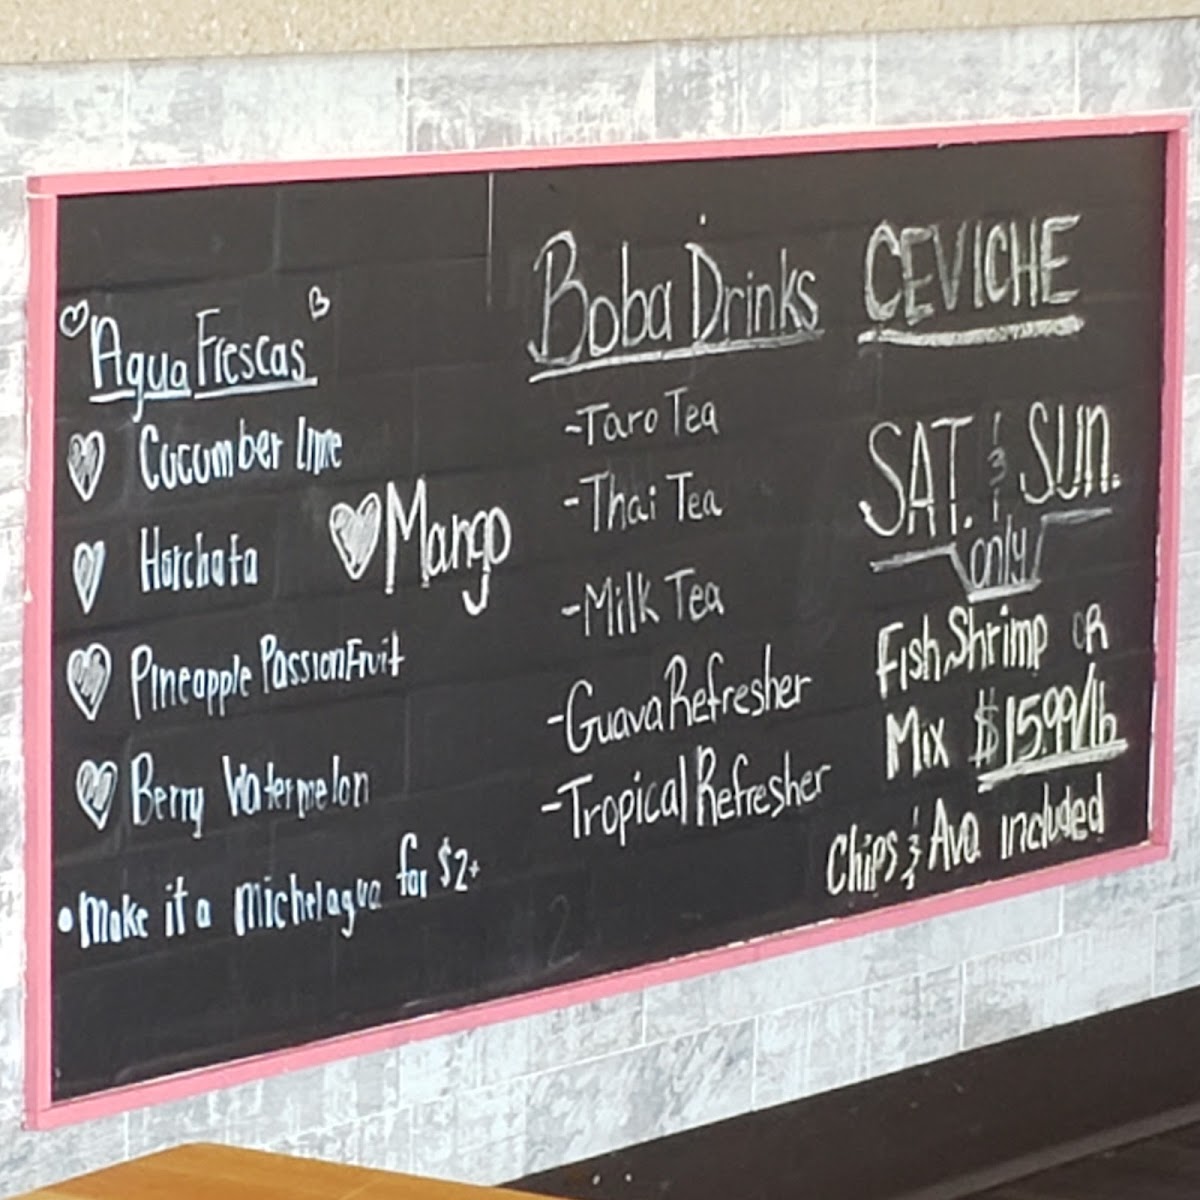 Agua Frescas
Cucumber Lime
Horchata
Mango
Pineapple PassionFruit
Berry Watermelon
• Make it a Michelagua for $2+
Boba Drinks
-Taro Tea
-Thai Tea
-Milk Tea
-Guava Refresher
-Tropical Refresher
CEVICHE
SAT. & SUN.
only
Fish, Shrimp OR
Mix $15.99/lb
Chips & Avo included